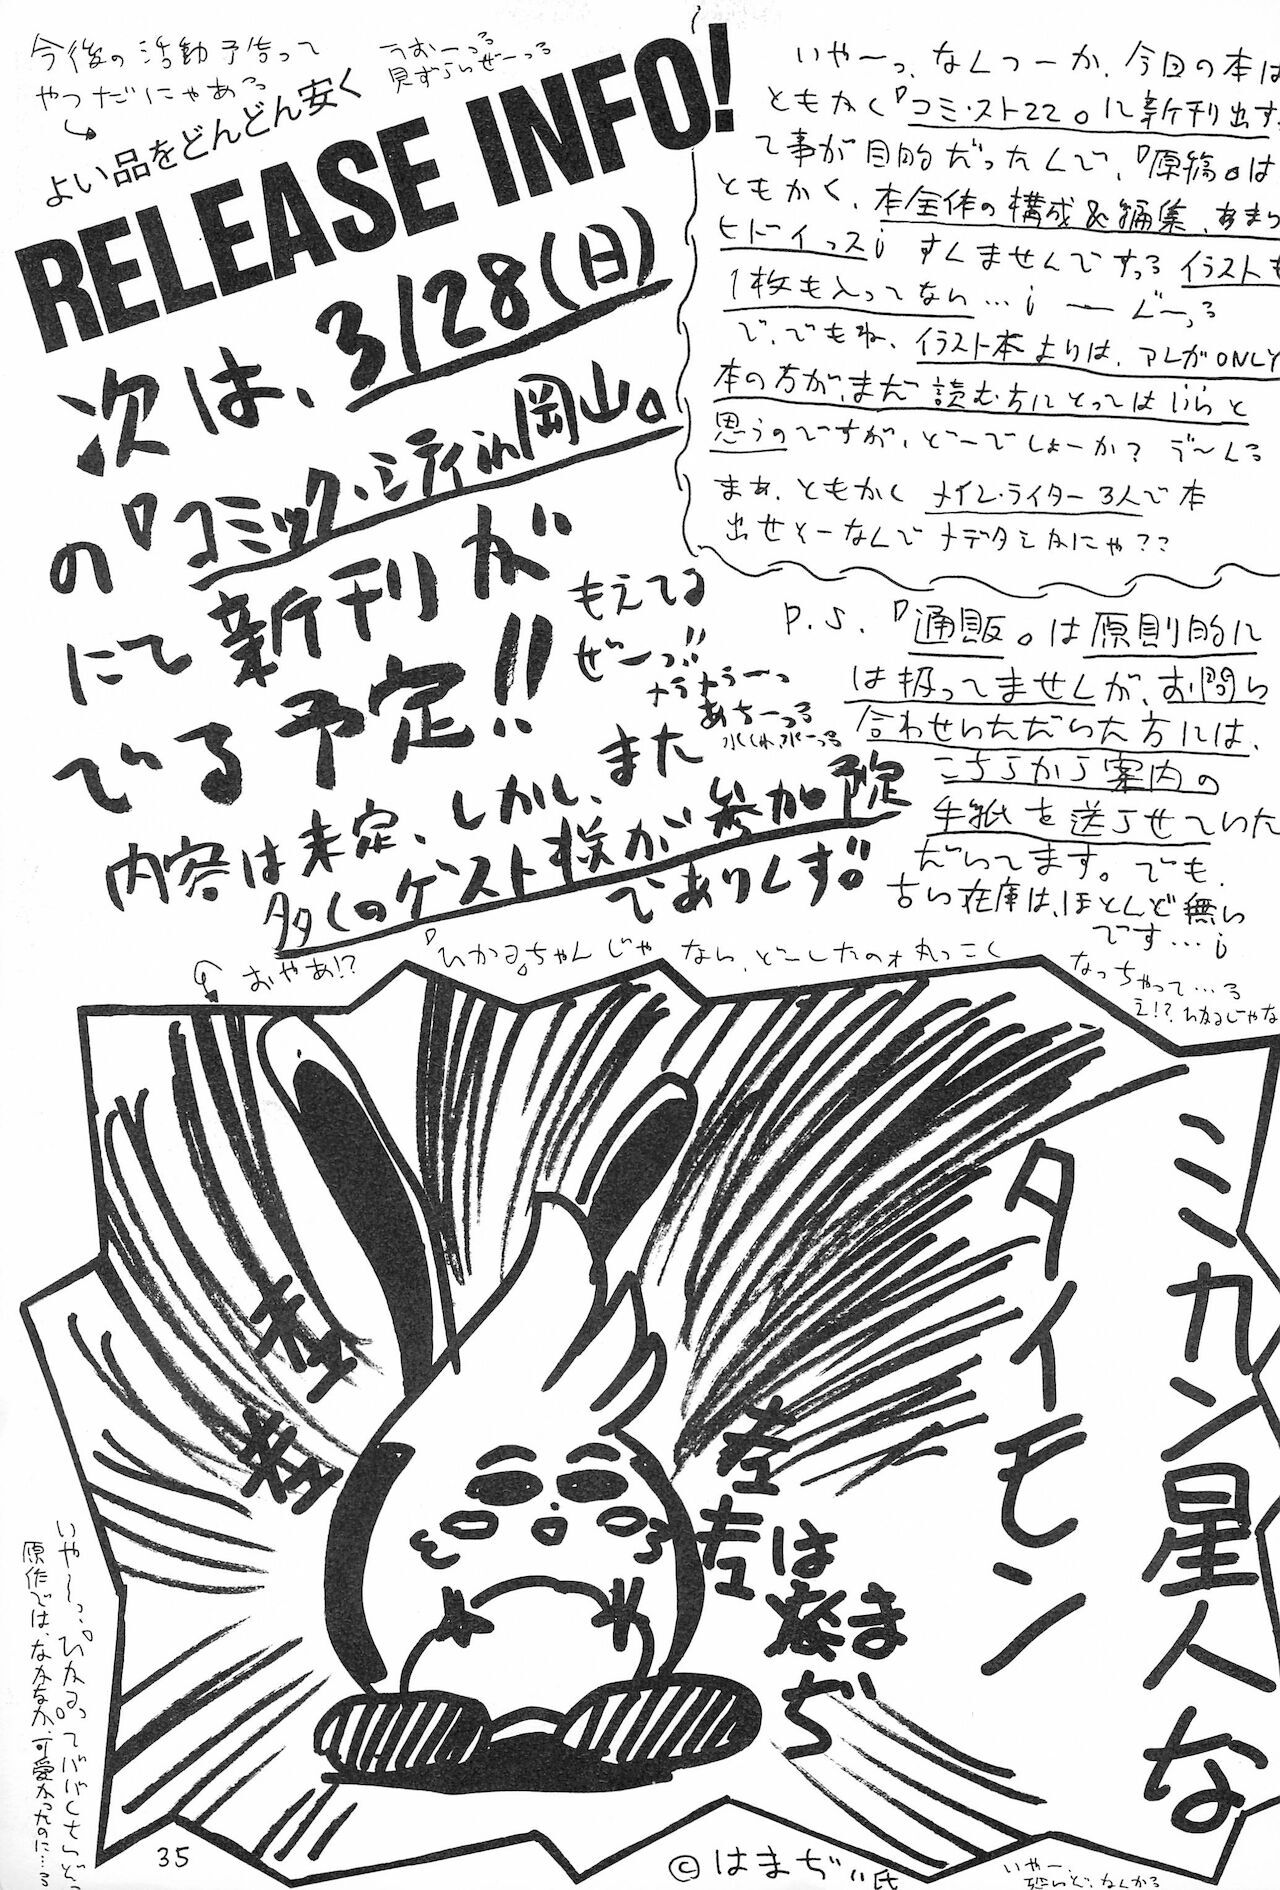 今後の活動予告って
やつだにゃあっ
うおーっる
見ずらいぜーっる
よい品をどんどん安く
RELEASE INFO!
次は、3/28(日)
の『コミック・シティin岡山』
にて新刊が
でいる予定!!
もえてる
ぜーっ!!
メラメラーっ
あちーっる
内容は未定、しかし、また
多くのゲスト様が参加予定
でありんす。
いやーっ、なんつーか、今回の本は
ともかく『コミ・スト22』に新刊出す
て事が目的だったんで、『原稿』は
ともかく、本全体の構成&編集、あまり
ヒドイっス¡ すんませんですっる イラストも
1枚も入ってない…¡ ーんーっる
で、でもね、イラスト本よりは、アレがONLY
本の方が、まだ読む方にとってはいいと
思うのですが、どーでしょーか? う〜んる
まぁ、ともかくメイン・ライター3人で本
出せそーなんでメデタシかにゃ??
P.S.『通販』は原則的に
は扱ってませんが、お問い
合わせいただいた方には、
こちらから案内の
手紙を送らせていた
だいてます。でも、
古い在庫は、ほとんど無い
です…¡
おやあ!?
『ひかる』ちゃんじゃない、どーしたのォ丸っこく
なっちゃって…る
え!?、ひかるじゃな
ミカン星人な
タイモン
はまぢ
いやーっ、『ひかる』ってばバくちいど
原作では、なかなか、可愛かったのに…る
35
©はまぢぃ氏
いやー、